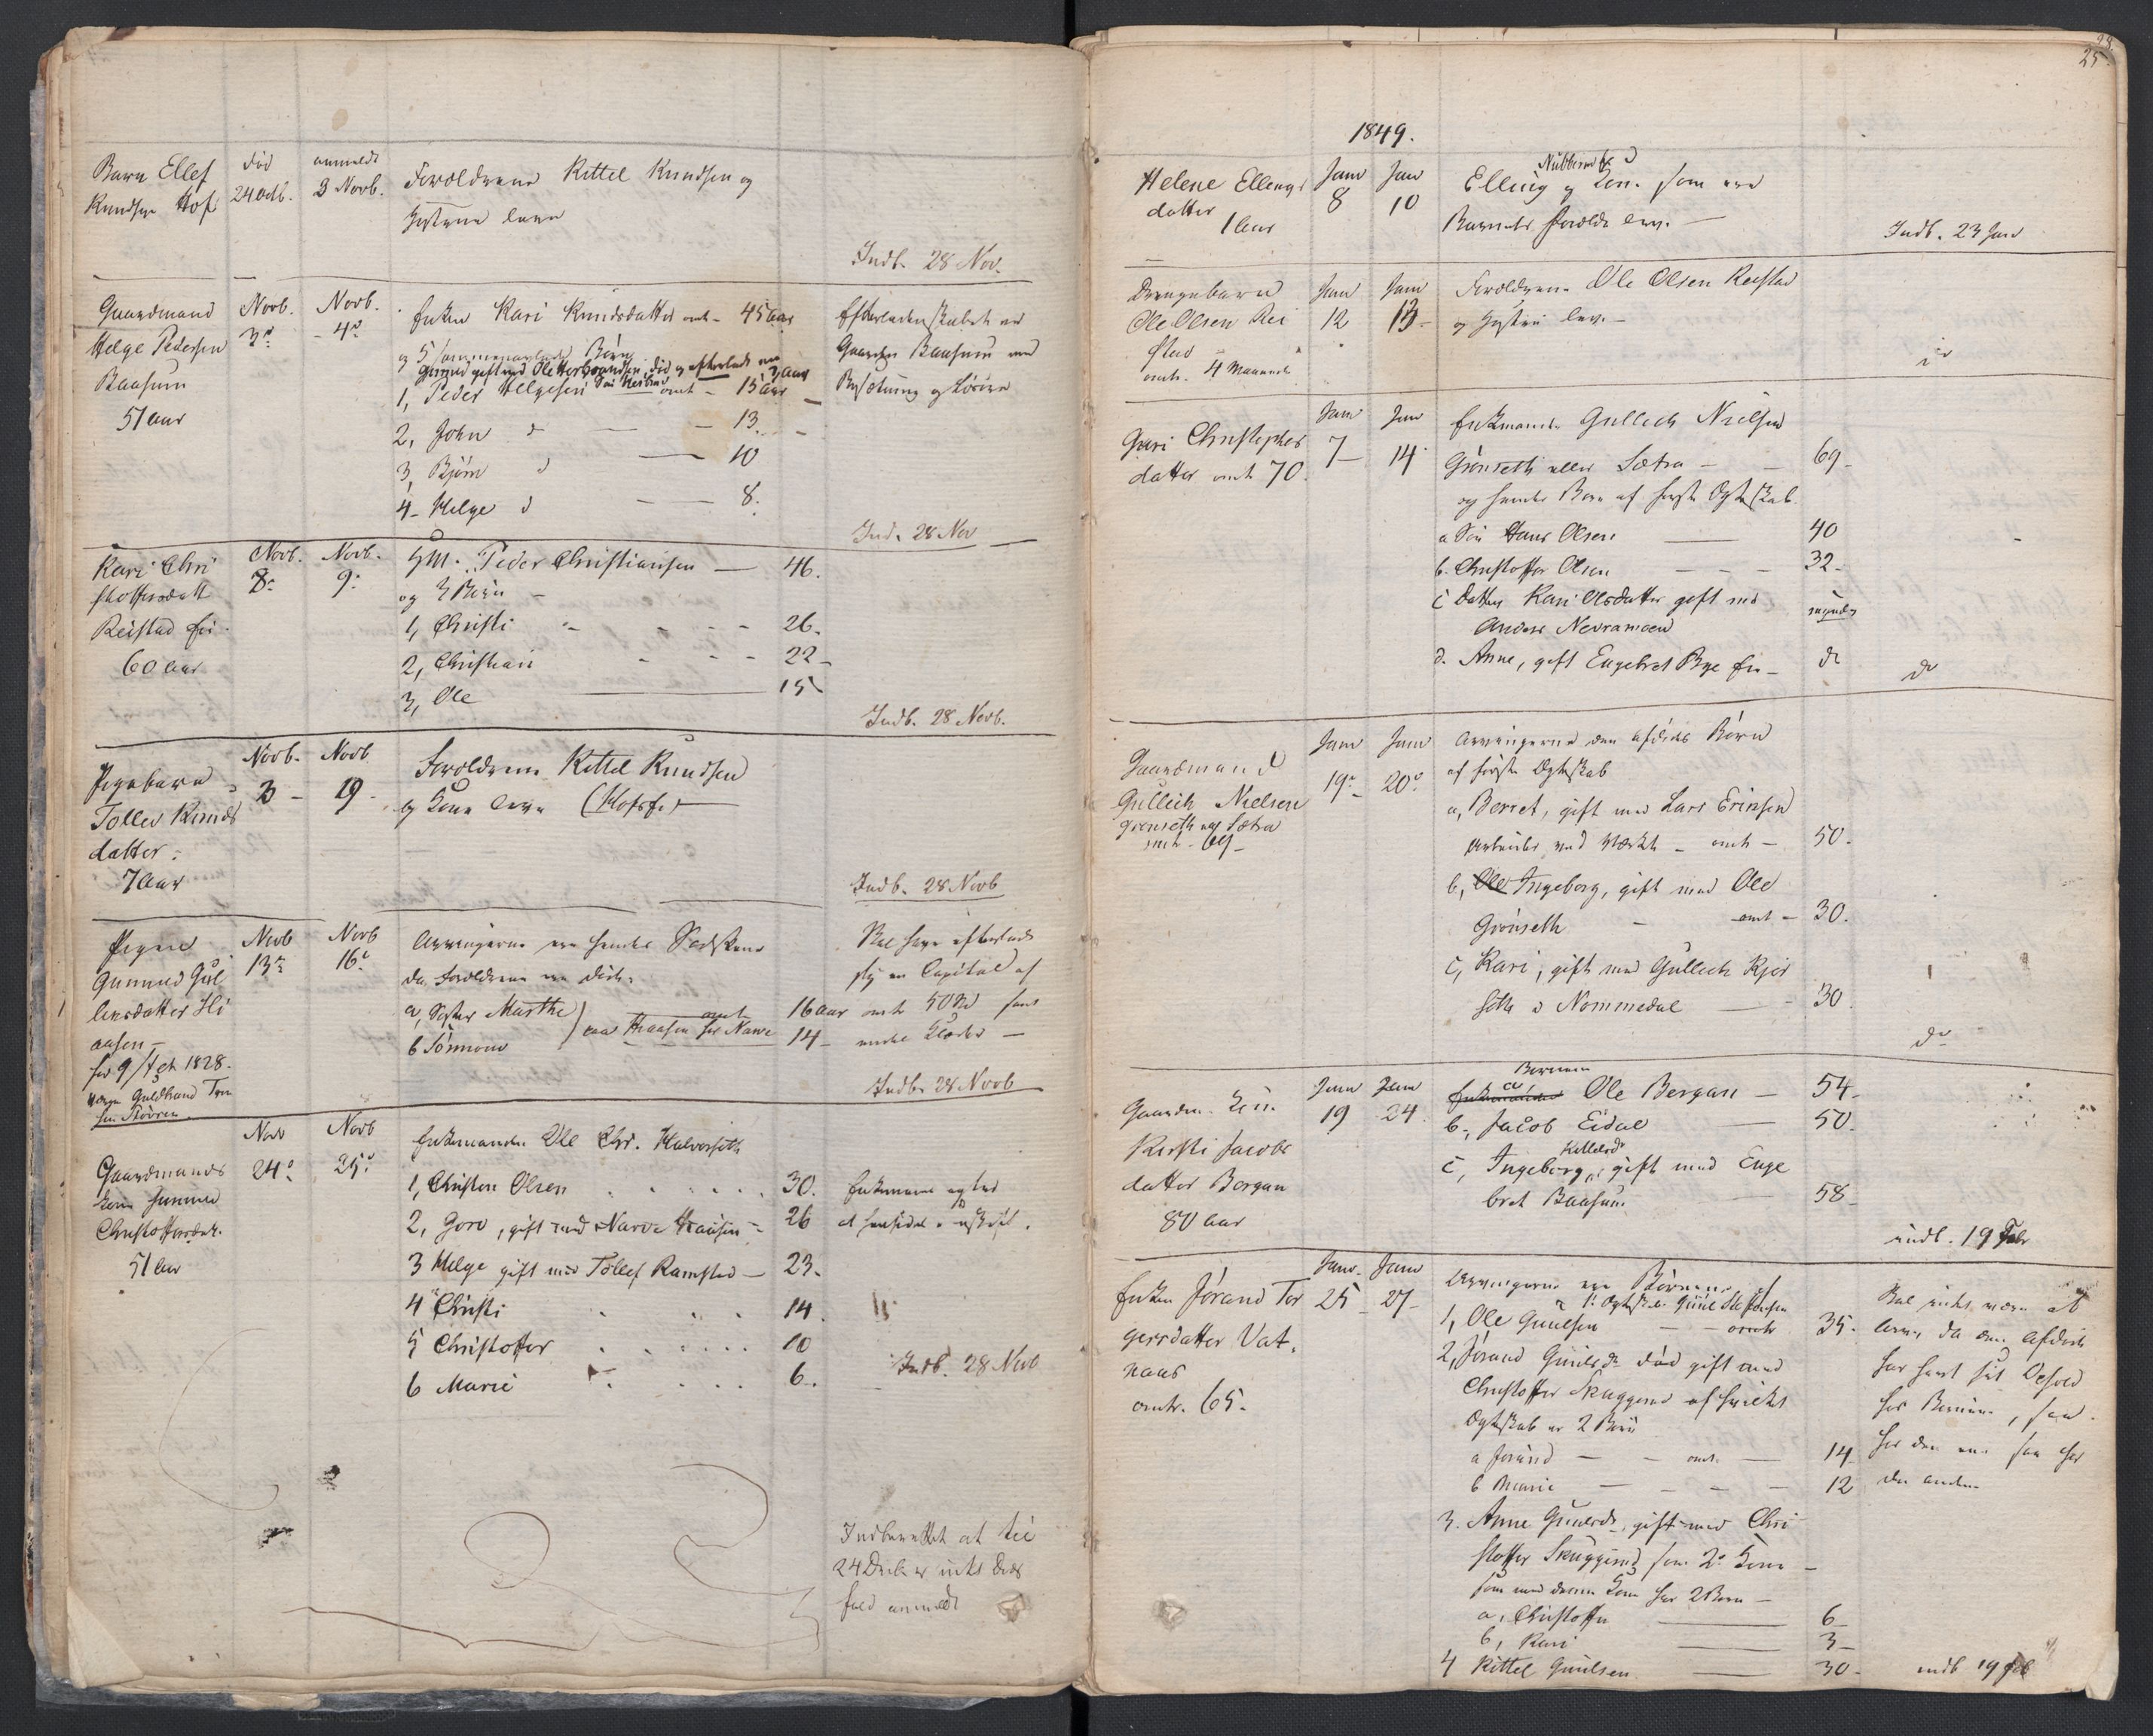 Barn Ellef
Knudsen Hof
død
24 Octb.
anmeldt
3 Novb.
Forældrene Kittel Knudsen og
Hustrue leve
Indb. 28 Nov.
Gaardmand
Helge Pedersen
Baasum
51 aar
Novb.
3d
Novb.
4d
Enken Kari Knudsdatter omt- 45 aar
og 5 sammenavlede Børn
1, Peder Helgesen omt - 15 aar
2, John d - 13.
3, Bjørn d 10
4- Helge d - 8.
Efterladenskabet er
Gaarden Baasum med
Besætning og Løsøre
Ind. 28 Nov
Kari Chri
stoffersdatt
Reistad
60 aar
Novb.
8d
Novb.
9d
GM. Peder Christiansen - 46.
og 3 Børn -
1, Christi - 26.
2, Christian - 22-
3, Ole 15
Indb. 28 Novb.
Pigebarn
Tollev Knuds
datter
7 Aar
Novb.
3 -
Novb
19
Forældrene Kittel Knudsen
og Kone leve (Hofsf.)
Indb. 28 Novb
Pigen
Gunnild Gul
liksdatter Hi
aasen -
fød 9/ 1828.
Novb
13d
Novb
16d
Arvingerne ere hendes Sødskende
da Forældrene ere døde
a, Søster Marthe omt 16 aar
b Tørmoen 14-
Skal have efterladt
sig en Capital af
omt 50 Spd samt
endel Klæder -
Indb. 28 Novb
Gaardmands
Kone Gunnild
Christoffersdatt.
51 Aar
Nov
24d
Novb
25d
Enkemanden Ole Chr. Halvorseth
1, Christen Olsen 30.
2, Goro, gift med Narve Hiaasen - 26
3 Helge gift med Tollef Ramstad - 23.
4 Christi 14.
5 Christoffer 10
6 Marie 6.
Indb. 28 Novb
Indberettet at til
24 Decb er intet Døds
fald anmeldt
28.
25.
1849.
Helene Ellings
datter
1 Aar
Janv
8
Janv
10
Elling og Kone som ere
Barnets Forældre leve. -
Indb. 23 Janv
Drengebarn
Ole Olsen Rei
stad
omtr. 4 Maaneder
Janv
12
Janv
13-
Forældrene Ole Olsen Reistad
og Hustru leve. -
do
Guri Christophers
datter omt 70.
Janv
7-
Janv
14
Enkemanden Gullich Nielsen
Grønseth eller Sætra - 69-
og hendes Børn af første Ægteskab.
a Søn Hans Olsen 40
b. Christoffer Olsen - - - 32-
c Datter Kari Olsdatter gift med
Anders Nevramoen myndig
d. Anne, gift Engebret Bye do
do
Gaardmand
Gullich Nielsen
Grønseth Sætra
omt - 69 -
Janv
19d
Janv
20d
Arvingerne den afdødes Børn
af første Ægteskab
a, Berret, gift med Lars Erinsen
Arbeider ved Værket - omt - 50.
b, Ole Ingeborg, gift med Ole
Grønseth - omt - 30.
c, Kari, gift med Gullich Kjør
i Nommedal 30.
do
Gaardm. Kone
Kirsti Jacobs
datter Bergan
80 Aar
Janv
19
Janv
24
Børnene
Enkemanden a Ole Bergan - 54-
b, Jacob Eidal 50.
c, Ingeborg Kittelsdr, gift med Enge
bret Baasum 58-
indb. 19 Febr
Enken Jørand Tor
gersdatter Vat,
naas
omtr. 65-
Janv.
25
Janv
27-
Arvingerne ere Børnene af
1, Ole Guulsen - - omtr 35-
2, Jørand Guulsdr død gift med
Christoffer Skuggerud af hvilket
Ægteskab er 2 Børn
a Jørand - - omt. 14
b Marie - - - 12
3. Anne Guulsdr, gift med Chri
stoffer Skuggerud som 2d Kone -
som med denne Kone har 2 Børn -
a, Christoffer 6-
b, Kari 3-
4 Kittel Guulsen 30-
Skal intet være at
arve, da den Afdøde
har havt sit Ophold
hos Børnene, saa
hos den ene saa hos
den anden
indb 19 Feb